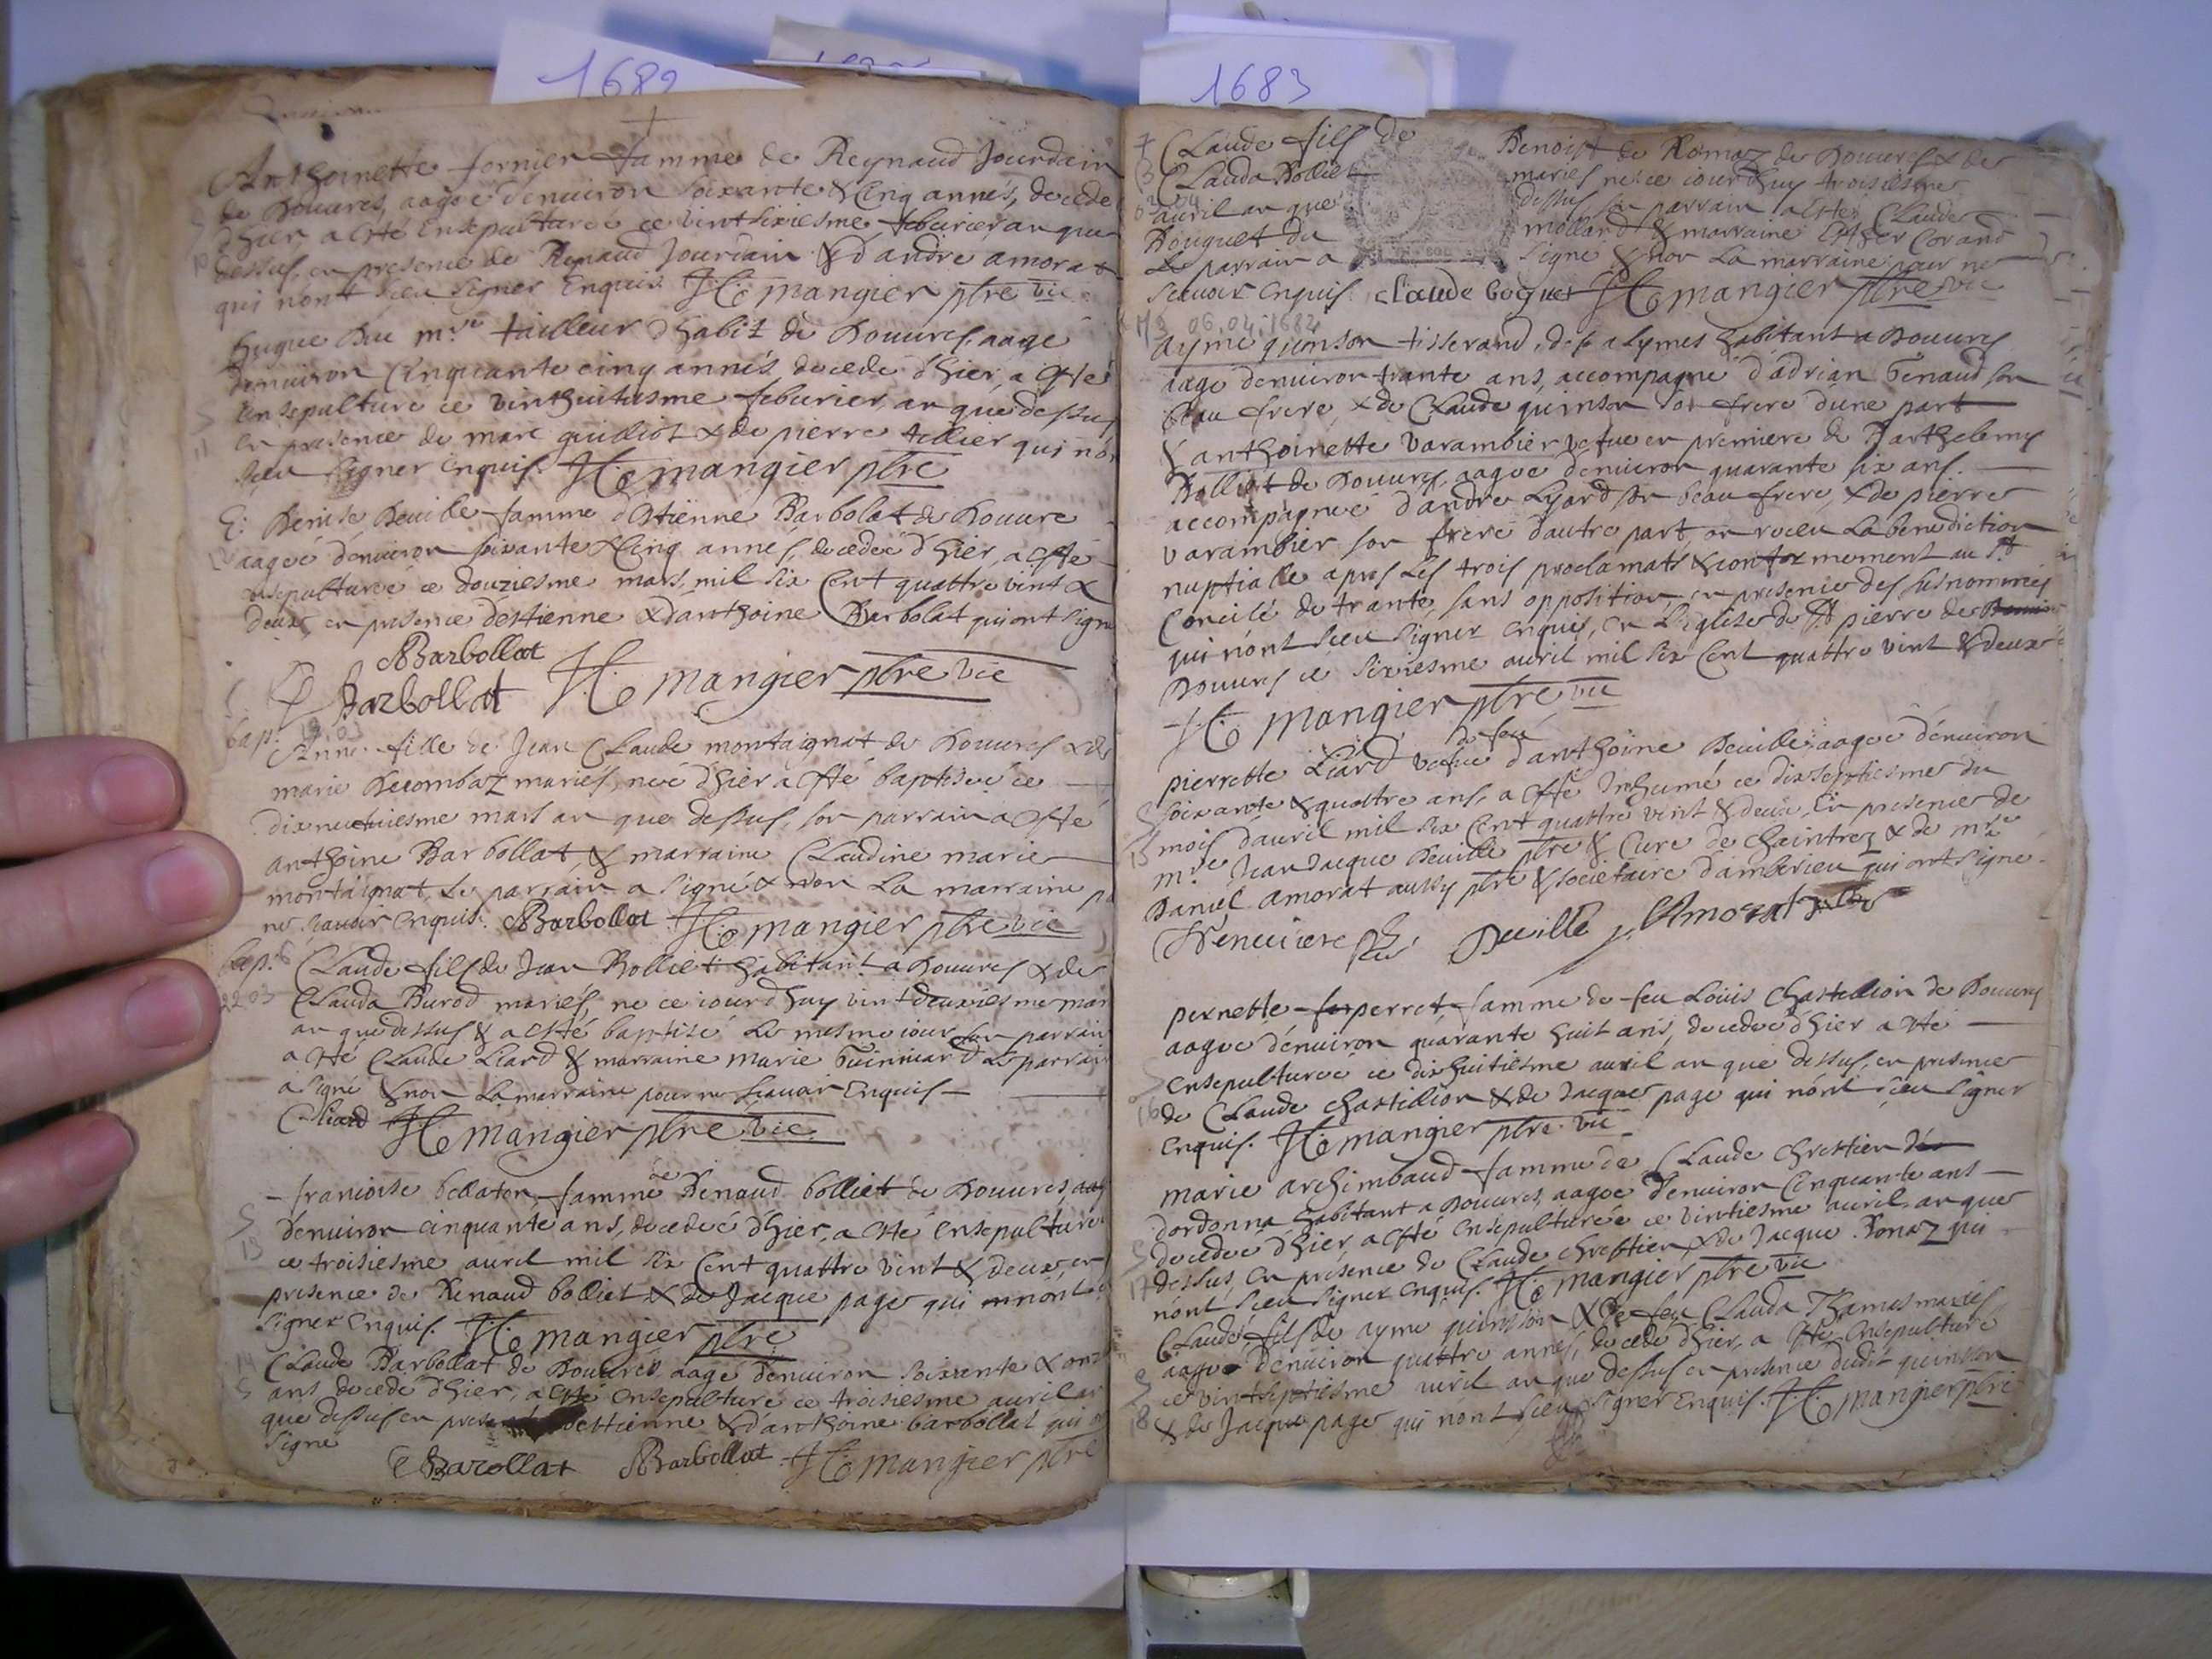 1682
1683
Anthoinette fornier famme de Reynaud Jourdain
de Douures, aagee denuiron soixante & cinq annés, decede
dhier, a esté ensepulturée ce vintsixiesme feburier an que
dessus, en presence de Renaud Jourdain & d'andré amorat
qui nont sceu signer Enquis. H. mangier ptre vic
hugue Duc mre tailleur d'habit de Douures, aagé
denuiron cinquante cinq annés, decedé d'hier, a esté
ensepulturé ce vinthuitiesme feburier, an que dessus
en presence de marc guilliot & de pierre tellier qui nō
sceu signer enquis. H. mangier ptre
Denise Deuille famme d'Estienne Barbolat de Douure
aagée denuiron soixante & cinq années, decedée d'hier, a esté
ensepulturée ce douziesme mars, mil six cent quattre vint &
deux, en presence destienne & d'anthoine Barbolat qui ont signe
Barbollat
Barbollat H. mangier ptre vic
bap.
Anne fille de Jean Claude montaignat de Douures & de
marie Decombaz mariés, née d'hier a esté baptisée ce
dixneuuiesme mars an que dessus, son parrain a esté
anthoine Barbollat, & marraine Claudine marie
montaignat, Le parrain a signé & non La marraine p
ne scauoir enquis. Barbollat H. mangier ptre vic
bap.
Claude fils de Jean Bolliet habitant a Douures & de
22 03
Clauda Burod mariés, né ce iourdhuy vintdeuxiesme mar
an que dessus & a esté baptisé Le mesme iour, son parrain
a esté Claude Liard & marraine marie Guinmard Le parrain
a signé & non La marraine pour ne scauoir Enquis
C liard H. mangier ptre vic.
francoise bellaton, famme de Renaud bolliet de Douures, aag
S
denuiron cinquante ans, decedée d'hier, a esté ensepulturé
13
ce troisiesme auril mil six cent quattre vint & deux, en
presence de Renaud bolliet & de Jacque page qui nont
signer Enquis. H. mangier ptre
14
Claude Barbollat de Douures, aagé denuiron soixante & onz
S
ans decedé d'hier, a esté ensepulturé ce troisiesme auril an
que dessus en presen destienne & d'anthoine barbollat qui
signe
E Barollat Barbollat H. mangier ptre
7
Claude fils de Benoist de Romaz de Douures & de
3
Clauda Bolliet mariés né ce iourdhuy troisiesme
auril an que dessus son parrain a esté Claude
Bouguet du mollard & marraine Esther Corand
Le parrain a signé & non La marraine pour ne
scauoir enquis. Claude boguet H. mangier ptre vic
06.04.1682
aymé quinson tisserand, de s a Lymes habitant a Douures
aagé denuiron trante ans, accompagné d'adrian Genaud son
beau frere & de Claude quinson son frere dune part
& anthoinette Varambier vefue en premiere de Barthelemy
Bolliet de Douures, aagée denuiron quarante six ans.
accompagnée d'andré Lyard son beau frere, & de pierre
varambier son frere d'autre part, on receu La benediction
nuptialle apres Les trois proclamats & conformement au St
Concile de trante, sans opposition, en presence des susnommés
qui nont sceu signer enquis, en L'eglise de St pierre de
Douures ce sixiesme auril mil six cent quattre vint & deux
H. mangier ptre vic
pierrette Liard vefue de feu d'anthoine Deuille, aagée denuiron
S
soixante & quattre ans, a esté Inhumé ce dixseptiesme du
15
mois d'auril mil six cent quattre vint & deux, En presence de
mre Jean Jacque Deuille ptre & Curé de Chaintrez & de mre
Daniel Amorat aussy ptre & societaire d'amberieu qui ont signe
Deuille Amorat
pernette perret famme de feu Louis Chastillion de Douures
aagée denuiron quarante huit ans, decedée d'hier a esté
S
ensepulturée ce dixhuitiesme auril an que dessus, en presence
16
de Claude Chastillion & de Jacque page qui nont sceu signer
Enquis. H. mangier ptre vic
marie archimbaud famme de Claude Chrestien
dordonna habitant a Douures, aagée denuiron cinquante ans
S
decedée d'hier a esté ensepulturée ce vintiesme auril, an que
17
dessus, en presence de Claude chrestien, & de Jacque Romaz qui
nont sceu signer enquis. H. mangier ptre vic
Claude, fils de aymé quinsson & de feu Clauda Thamas mariés
aagé denuiron quattre annés, decedé d'hier, a esté Ensepulturé
S
ce vintseptiesme auril an que dessus en presence dudit quinsson
18
& de Jacque page qui nont sceu signer Enquis. H. mangier ptre